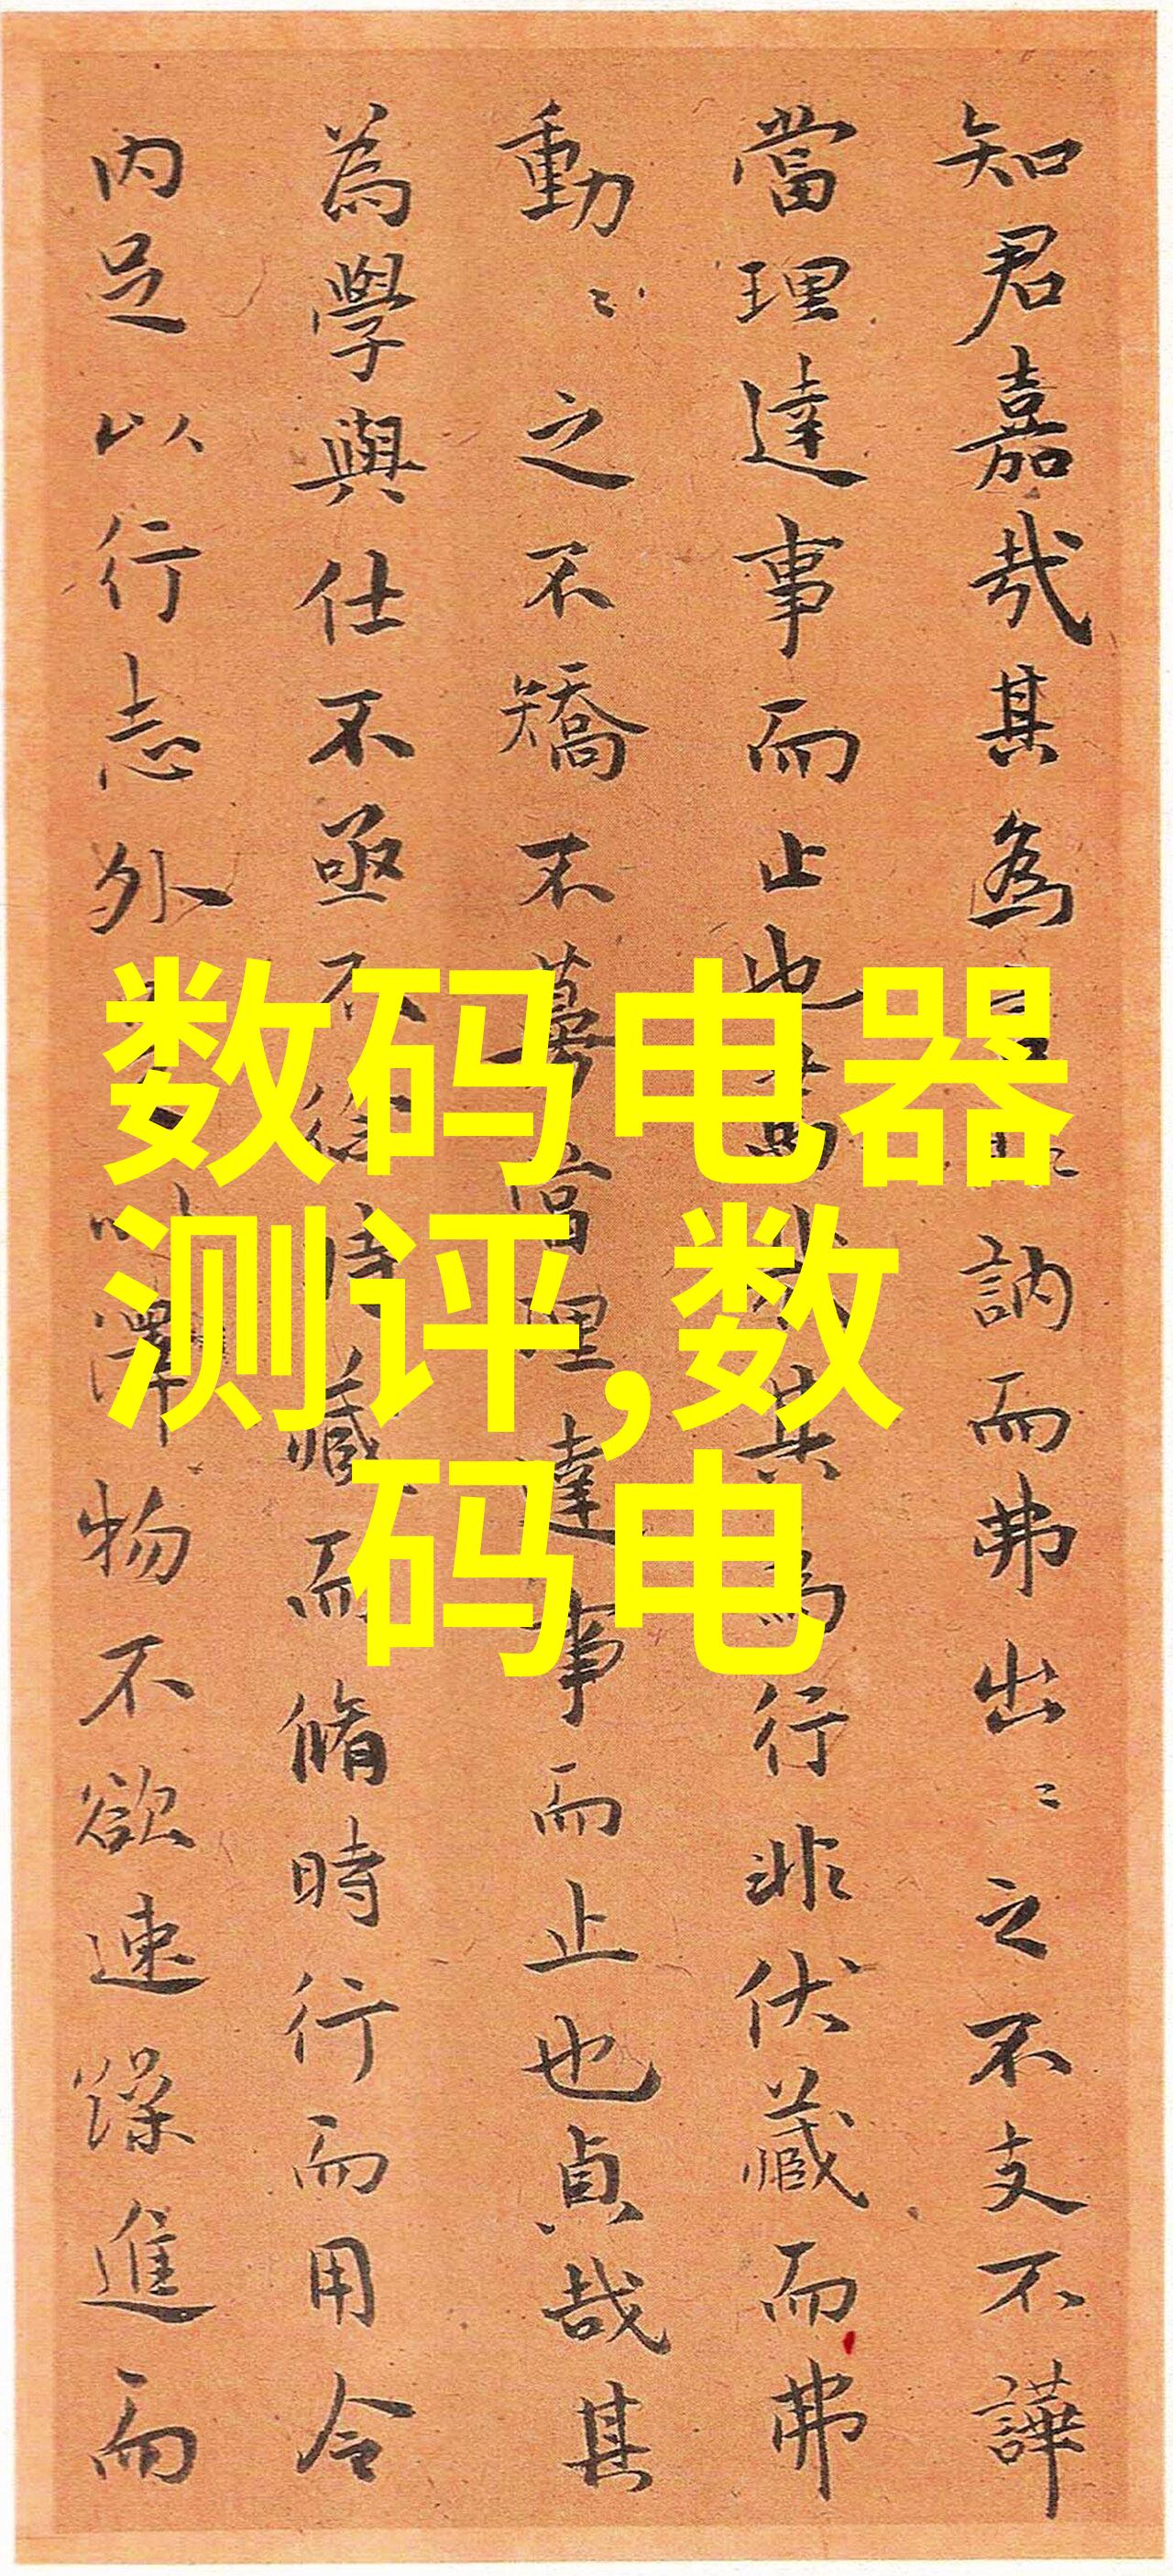 知君嘉哉其為訥而弗出〻之不支不譁
當理達事而止也其為行非伏藏而弗
動〻之不矯不當理達事而止也貞哉其
為學與仕不亟不徐時藏而脩時行而用令
内足以行志外澤物不欲速躁進而
数码电器
测评,数
码电